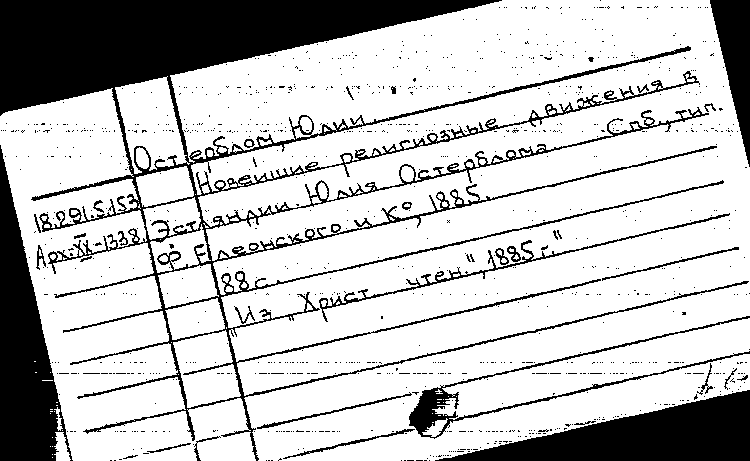 Остерблом, Юлий.
Новейшие религиозные движения в
18.291.5.153 Эстляндии. Юлия Остерблома. Спб., тип.
Арх.XX-1338. Ф. Елеонского и К⁰, 1885.
88 с.
"Из "Христ. чтен.", 1885 г."